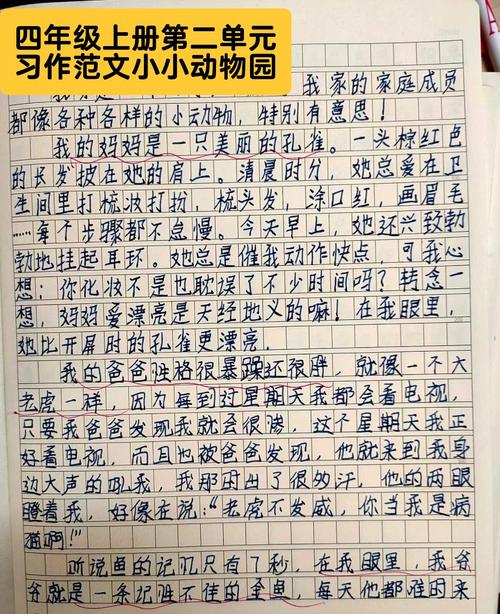 四年级上册第二单元
习作范文小小动物园
我家的家庭成员
都像各种各样的小动物，特别有意思！
我的妈妈是一只美丽的孔雀。一头棕红色
的长发披在她的肩上。清晨时分，她总爱在卫
生间里打梳妆打扮，梳头发，涂口红，画眉毛
……每个步骤都不怠慢。今天早上，她还兴致勃
勃地挂起耳环。她总是催我动作快点，可我心
想：你化妆不是也耽误了不少时间吗？转念一
想，妈妈爱漂亮是天经地义的嘛！在我眼里，
她比开屏时的孔雀更漂亮.
我的爸爸性格很暴躁还很胖，就像一个大
老虎一样，因为每到过星期天我都会看电视，
只要我爸爸发现我就会很惨，这个星期天我正
好看电视，而且也被爸爸发现，他就来到我身
边大声的吼我，我都因出了很多汗，他的两眼
瞪着我，好像在说：“老虎不发威，你当我是病
猫啊！”
听说鱼的记忆只有7秒，在我眼里，我爷
爷就是一条记性不佳的金鱼，每天他都准时来